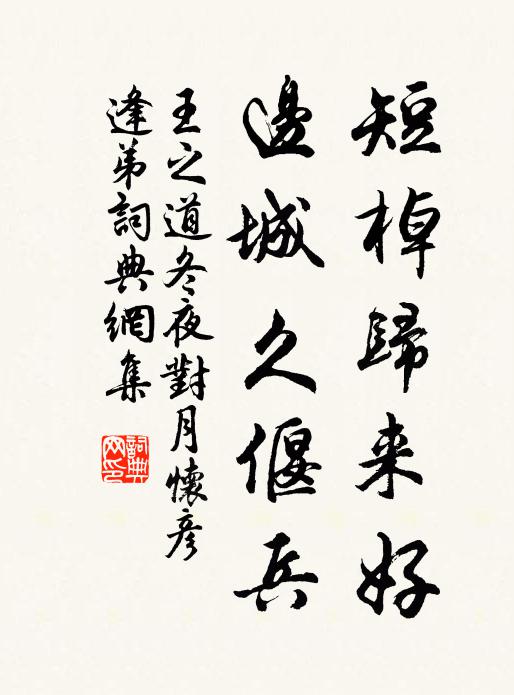 短棹歸来好
邊城久偃兵
王之道冬夜對月懷彦
逢弟詞典網集
詞典网印